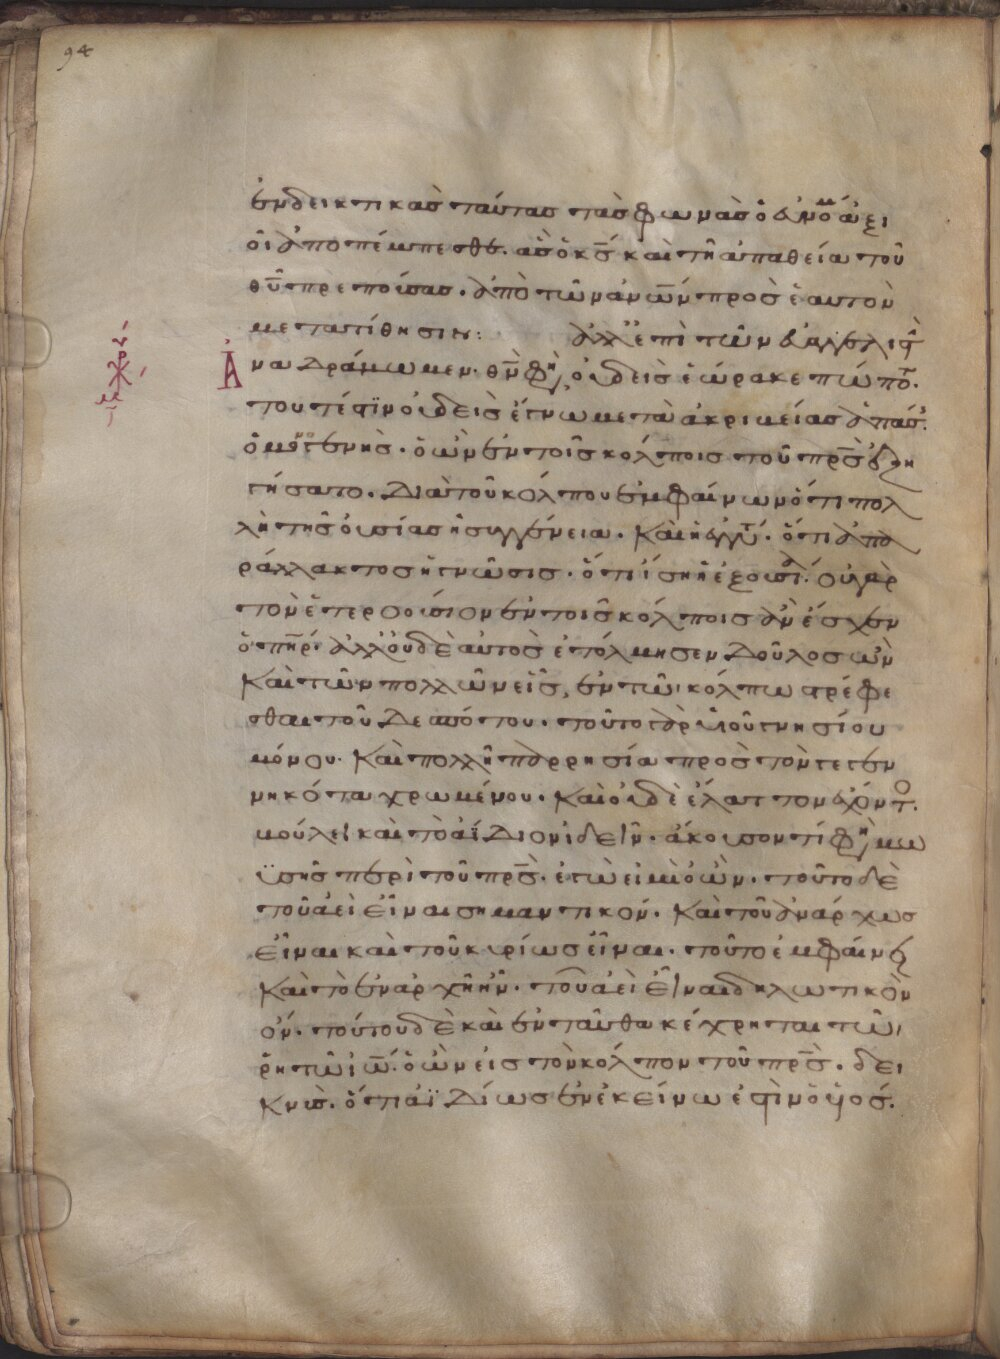 94
ἐνδεικτικὰς ταύτας τὰς φωνὰς ὁ
οἱ ἀποπέμπεσθε. ὡς ὁ κς καὶ τῆ ἀπαθεία τοῦ
θῦ πρεπούσας. ἀπὸ τῶν ἀνῶν πρὸς ἑαυτὸν
μετατίθησιν: ἀλλ' ἐπὶ τῶν
Ἀναδράμωμεν. θν φη, οὐδεὶς ἑώρακε πώποτ.
τουτέστιν οὐδεὶς ἔγνω μετὰ ἀκριβείας ἁπάσ.
ὁ μονογενης. ὁ ὢν ἐν τοῖς κόλποις τοῦ πρς ἐξη
γήσατο. διὰ τοῦ κόλπου ἐμφαίνων ὅτι πολ
λὴ τῆς οὐσίας ἡ συγγένεια. καὶ ἡ ἐγγύ. ὅτι ἀπα
ράλλακτος ἡ γνῶσις. ὅτι ἴση ἡ ἐξουσί. οὐ γὰρ
τὸν ἑτεροούσιον ἐν τοῖς κόλποις ἂν ἔσχεν
ὁ πηρ. ἀλλ' οὐδὲ αὐτὸς ἐτόλμησεν δοῦλος ὢν
καὶ τῶν πολλῶν εἷς, ἐν τῶ κόλπω στρέφε
σθαι τοῦ δεσπότου. τοῦτο γὰρ υἱοῦ γνησίου
μόνου. καὶ πολλῆ παρρησία πρὸς τὸν γεγεν
νηκότα χρωμένου. καὶ οὐδὲ ἔλαττον ἔχοντ.
βούλει καὶ τὸ ἀΐδιον ἰδεῖν. ἄκουσον τί φη μω
ϋσῆς περὶ τοῦ πρς. ἐγώ εἰμι ὁ ὤν. τοῦτο δὲ
τοῦ ἀεὶ εἶναι σημαντικόν. καὶ τοῦ ἀνάρχως
εἶναι καὶ τοῦ κυρίως εἶναι. τοῦτο ἐμφαίνει
καὶ τὸ ἐν ἀρχῆ ἦν. τοῦ ἀεὶ εἶναι δηλωτικὸν
ὄν. τούτου δὲ καὶ ἐνταῦθα κέχρηται τῶ
ῥητῶ ἰω. ὁ ὢν εἰς τὸν κόλπον τοῦ πρς. δει
κνυσ. ὅτι ἀϊδίως ἐν ἐκείνω ἐστὶν ὁ υἱός.